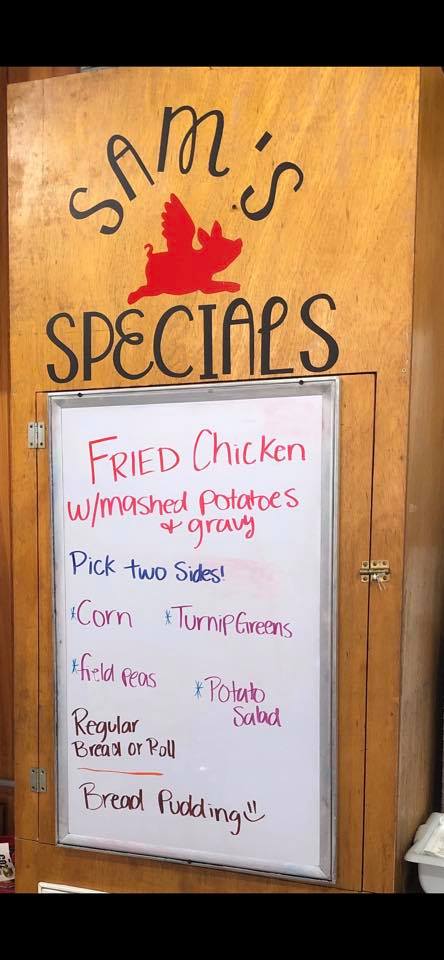 SAM'S
SPECIALS
FRIED Chicken
w/mashed Potatoes
& gravy
Pick two Sides!
*Corn *Turnip Greens
*field peas
*Potato
Salad
Regular
Bread or Roll
Bread Pudding